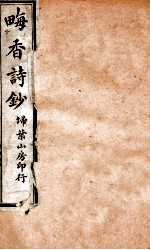 晦香詩鈔
埽葉山房印行